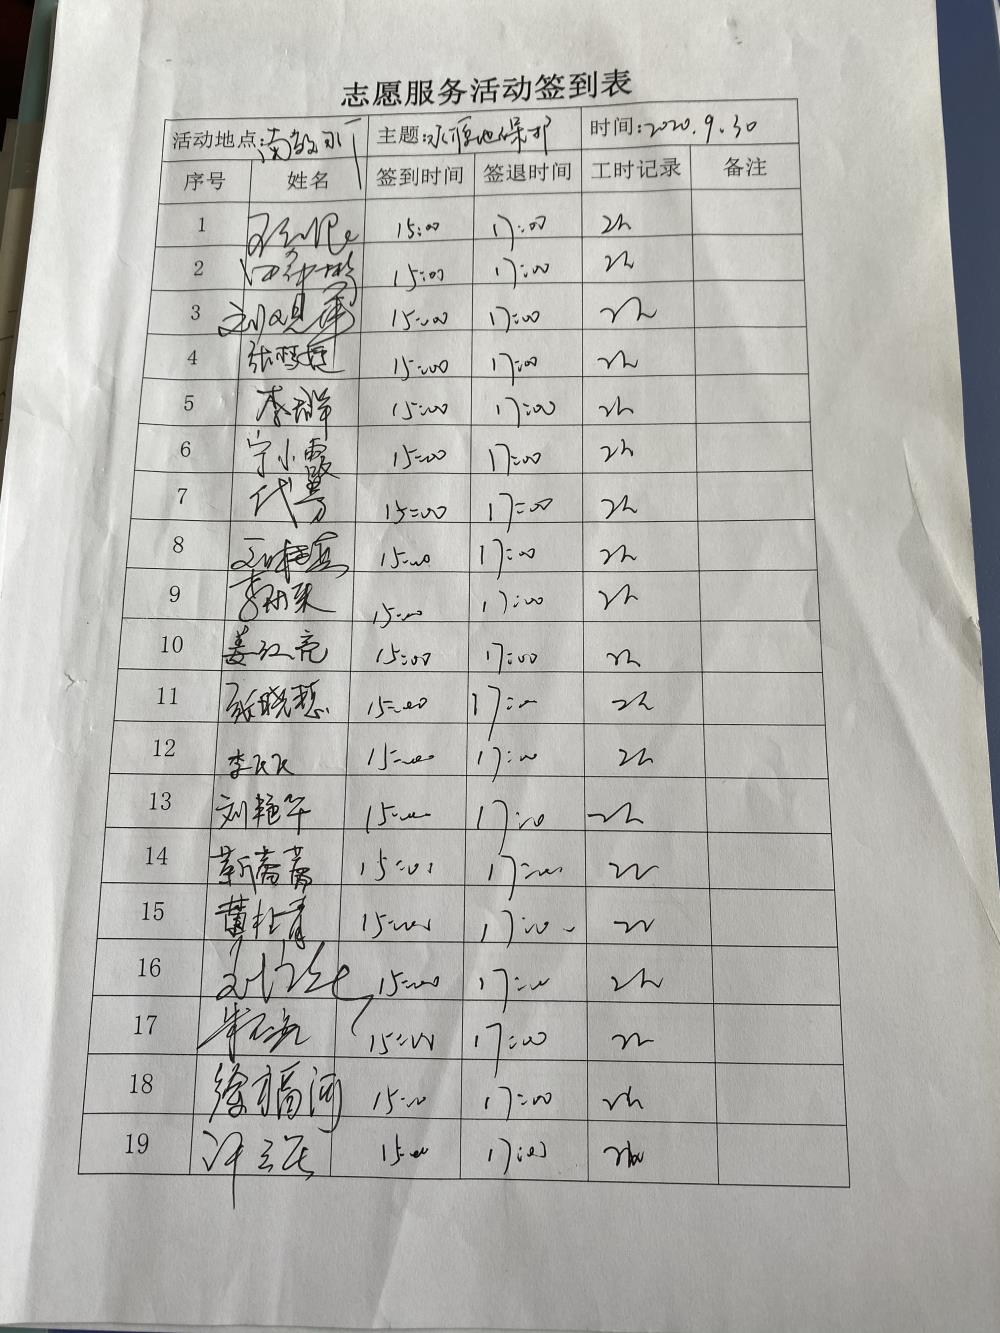 志愿服务活动签到表
活动地点: 主题:水源地保护 时间:2020.9.30
序号 姓名 签到时间 签退时间 工时记录 备注
1 15:00 17:00 2h
2 15:00 17:00 2h
3 15:00 17:00 2h
4 15:00 17:00 2h
5 李群 15:00 17:00 2h
6 宁小霞 15:00 17:00 2h
7 代芳 15:00 17:00 2h
8 15:00 17:00 2h
9 15:00 17:00 2h
10 姜红亮 15:00 17:00 2h
11 张晓慧 15:00 17:00 2h
12 李民民 15:00 17:00 2h
13 刘艳华 15:00 17:00 2h
14 靳蕾蕾 15:00 17:00 2h
15 15:00 17:00 2h
16 15:00 17:00 2h
17 15:00 17:00 2h
18 徐福河 15:00 17:00 2h
19 15:00 17:00 2h